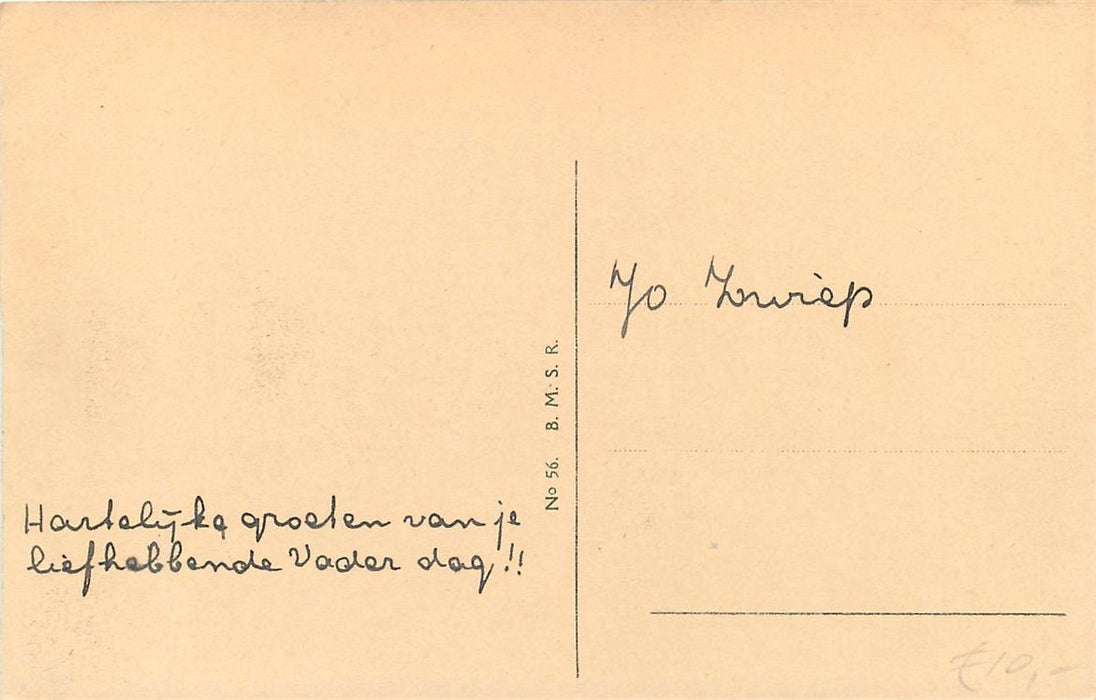 Hartelijke groeten van je
liefhebbende Vader dag!!
No 56. B. M. S. R.
Jo Zwiep
€10,-